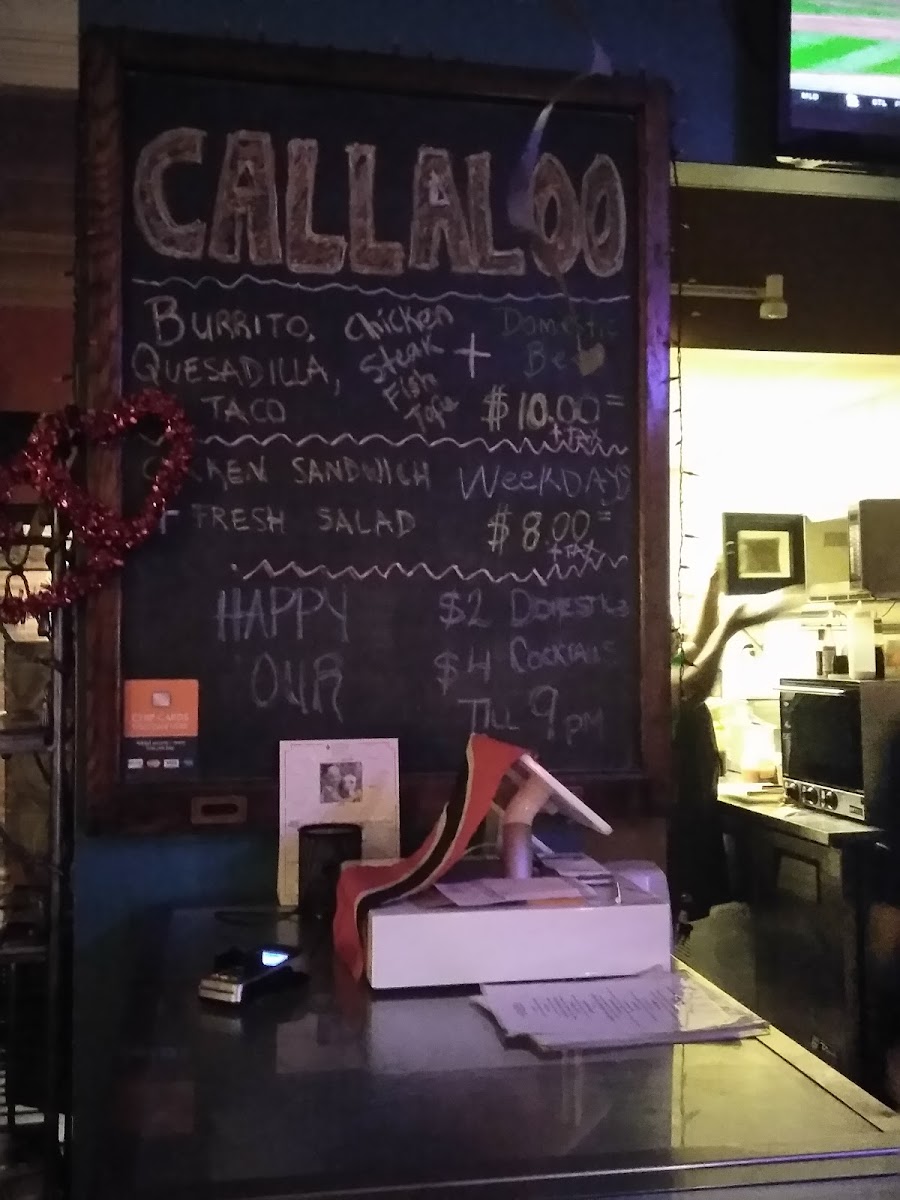 CALLALOO
BURRITO, Chicken
QUESADILLA, Steak + Domestic
TACO Fish
Tofu $10.00=
+TAX
SANDWICH WeekDAYS
+ FRESH SALAD $8.00=
+TAX
HAPPY $2 DOMESTIC
OUR $4 COCKTAILS
TILL 9 PM
CHIP CARDS